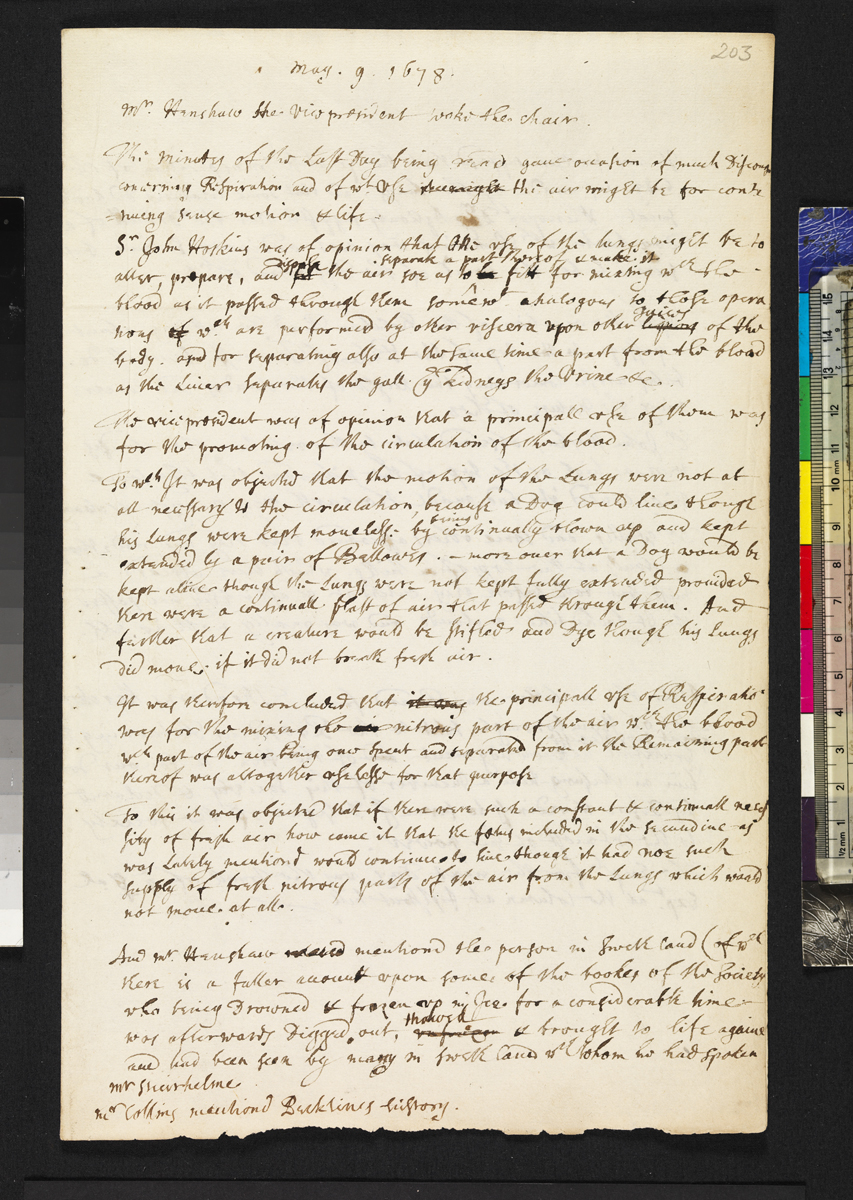 203
May. 9. 1678.
Mr. Henshaw the vice president tooke the chair.
The minutes of the Last Day being read gave occasion of much Discourse
concerning Respiration and of wt. use the air might be for conti
-nuing sense motion & life.
Sr. John Hoskins was of opinion that the use of the lungs might be to
separate a part thereof & make it
alter, prepare, and dispose the air soe as fitt for mixing wth the
blood as it passed through them somewt. analogous to those opera
juices
tions of wch. are performed by other viscera upon other liquors of the
body. and for separating also at the same time a part from the blood
as the Liver separates the gall. ye Kidneys the Urine &c.
The vice president was of opinion that a principall use of them was
for the promoting of the circulation of the blood.
To wch. It was objected that the motion of the Lungs were not at
all necessary to the circulation, because a Dog could live though
being
his Lungs were kept movelesse by continually blown up and kept
extended by a pair of Bellowes. - more over that a Dog would be
kept alive though the Lungs were not kept fully extended provided
there were a continuall blast of air that passed through them. And
further that a creature would be stifled and Dye though his Lungs
did move. if it did not breath fresh air.
It was therefore concluded that it was the principall use of Respiratio
was for the mixing the nitrous part of the air wth. the blood
wch. part of the air being once spent and separated from it the Remaining part
thereof was altogether uselesse for that purpose
To this it was objected that if there were such a constant & continuall neces
sity of fresh air how came it that the fetus included in the secundine as
was Lately mentiond would continue to live though it had noe such
supply of fresh nitrous parts of the air from the Lungs which would
not move at all.
And mr. Henshaw mentiond the person in Swethland (of wch
there is a fuller account upon some of the bookes of the Society
who being Drowned & frozen up in Ice for a considerable time
thawed
was afterwards Digged out, & brought to life againe
and had been seen by many in Swethland wth whom he had spoken
mr
mr Collins mentiond history.